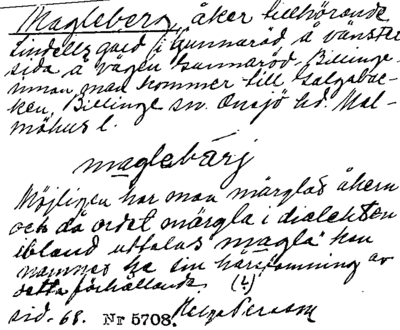 Magleberg, åker tillhörande
Lindells gård i Gunnaröd å vänster
sida å vägen Gunnaröd-Billinge
innan man kommer till Galgabac-
ken, Billinge sn. Onsjö hd. Mal-
möhus l.
maglebárj
Möjligen har man märglat åkern
och då ordet märgla i dialekten
ibland uttalas "magla" kan
namnet ha sin härstamning av
detta förhållande. (4)
sid. 68. Nr 5708. Helge Persson